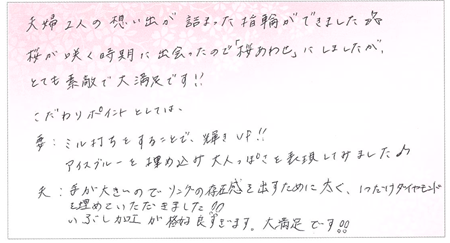 夫婦2人の想い出が詰まった指輪ができました
桜が咲く時期に出会ったので「桜あわせ」にしましたが、
とても素敵で大満足です!!
こだわりポイントとしては、
妻:ミル打ちをすることで、輝きUP!!
アイスブルーを埋め込み大人っぽさを表現してみました♪
夫:手が大きいのでリングの存在感を出すために太く、1つだけダイヤモンド
を埋めていただきました!!
いぶし加工が格好良すぎます。大満足です!!